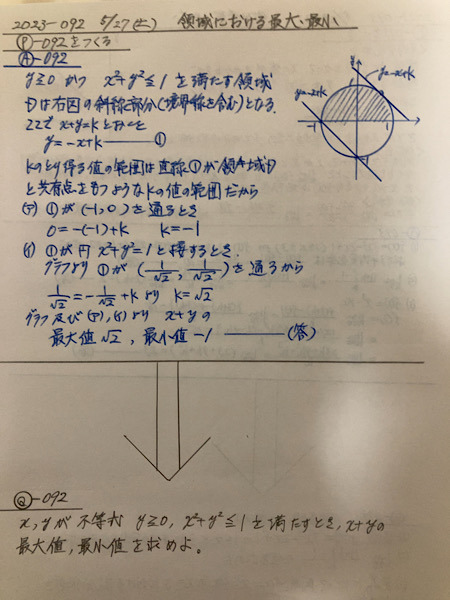 2023-092 5/27(土) 領域における最大・最小
Ⓟ-092をつくる
Ⓐ-092
y≧0 かつ x²+y²≦1 を満たす領域
Dは右図の斜線部分(境界線を含む)となる.
ここで x+y=k とおくと
y=-x+k ——①
kのとり得る値の範囲は直線①が領域D
と共有点をもつようなkの値の範囲だから
(ア) ①が(-1,0)を通るとき
0=-(-1)+k k=-1
(イ) ①が円 x²+y²=1 と接するとき.
グラフより ①が (1/√2, 1/√2) を通るから
1/√2=-1/√2+k より k=√2
グラフ及び(ア),(イ)より x+yの
最大値√2, 最小値-1 ——(答)
y
y=-x+k
y=-x+k
-1
1
x
-1
Ⓠ-092
x,yが不等式 y≧0, x²+y²≦1を満たすとき, x+yの
最大値,最小値を求めよ。